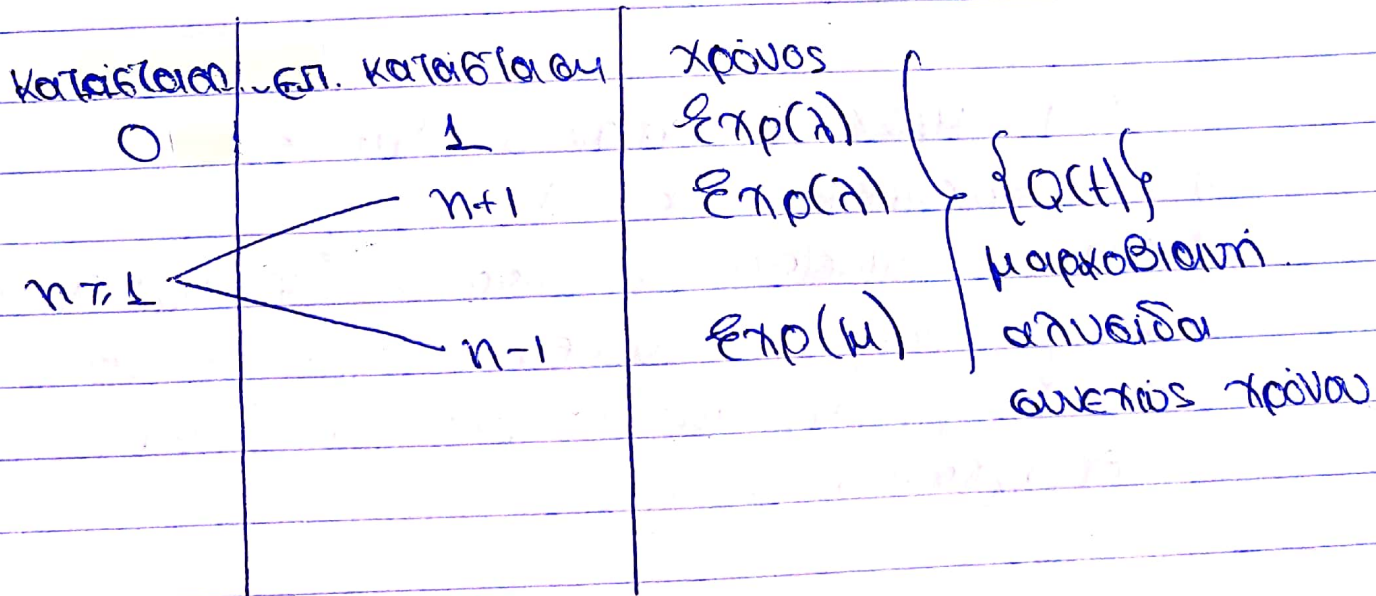 κατάσταση επ. κατάσταση χρόνος
0 1 Exp(λ)
n+1 Exp(λ) {Q(t)}
n≥1 μαρκοβιανή
n-1 Exp(μ) αλυσίδα
συνεχούς χρόνου